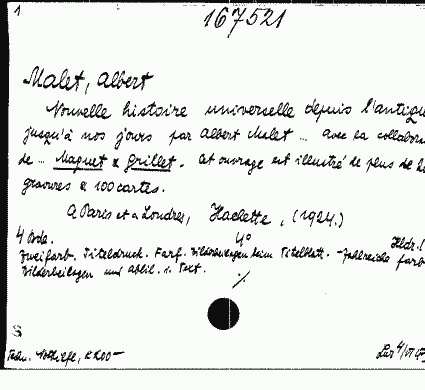 1
167521
Malet, Albert
Nouvelle histoire universelle depuis l'antiqu
jusqu'à nos jours par Albert Malet ... avec la collabora
de ... Maquet & Grillet. Cet ouvrage est illustré de plus de
gravures & 100 cartes.
A Paris et a Londres, Hachette, (1924.)
4 Bde. 4° Hldr.
Zweifarb. Titeldruck. Farb. Bilderbeilagen beim Titelblatt. - Zahlreiche farb
Bilderbeilagen und Abbil. i. Text.
·/.
S